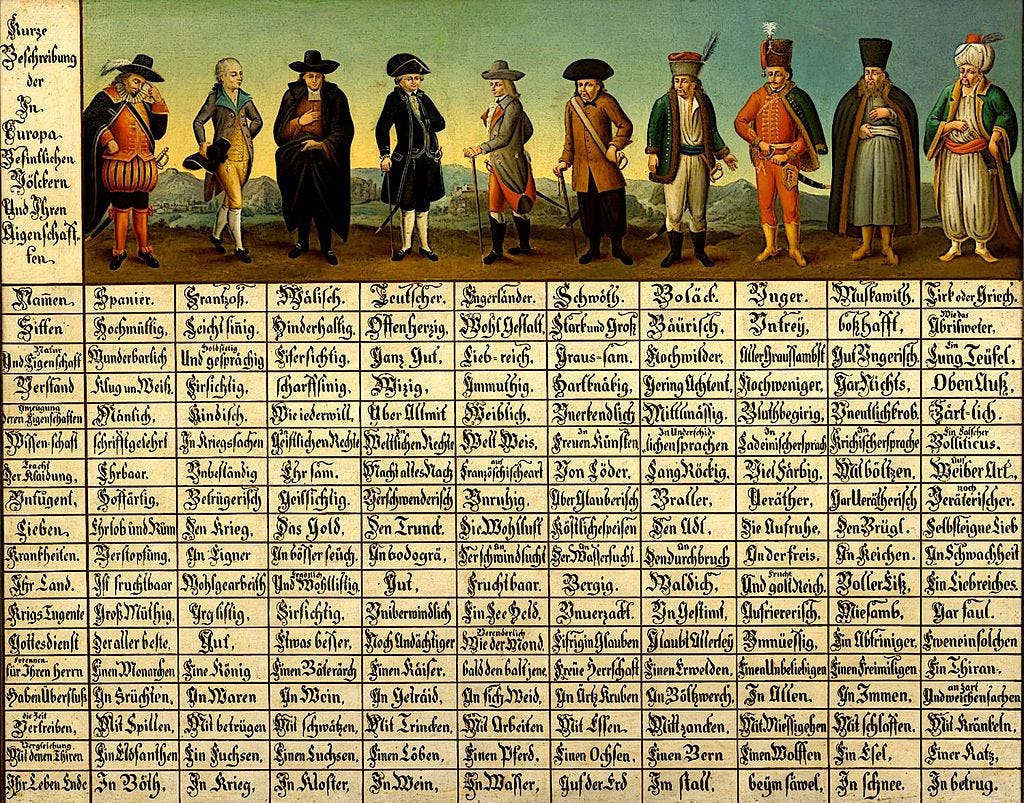 Kurze
Beschreibung
der
In
Europa
Befintlichen
Völckern
Und Ihren
Aigenschaff-
ten.
Namen. Spanier. Frantzoß. Wälisch. Teutscher. Engerländer. Schwöth. Boläck. Unger. Muskawith. Tirk oder Griech.
Sitten Hochmüttig, Leicht sinig. Hinderhaltig. Offenherzig, Wohl Gestalt, Starck und Groß Bäurisch, Untrey, boßhafft, Wie das Abrilweter,
Natur Und Eigenschaft Wunderbarlich Holdseelig Und gesprächig Eifersichtig. Ganz Gut, Lieb-reich, Graus-sam, Nochwilder, Aller Graussambst Gut Ungerisch, Ein Lung Teufel,
Verstand Klug un Weiß, Firsichtig, scharffsinig, Wizig, Ammuthig, Hartknäbig, Gering Achtent, Nochweniger, Gar Nichts, Oben Auß,
Anzeügung deren Eigenschaften Mänlich, Kindisch, Wie iederwill, Über Allmit Weiblich, Unerkendlich Mittlmässig, Bluthbegirig, Unentlich krob, Zärt-lich.
Wissenschaft schriftgelehrt In Kriegssachen In Geistlichen Rechte In Weltlichen Rechte Welt Weis, In Freuen Künsten In Underschid-lichen sprachen In Ladeinischer sprach In Krichischer sprache Ein Falscher Bolliticus.
Tracht Der Klaidung, Ehrbaar. Unbeständig Ehrsam, Macht alles Nach auf Französchische art Von Löder, Lang Röckig, Viel Färbig, Mit böltzen, Auf Weiber Art,
Untugent, Hoffärtig, Betrügerisch Geillsichtig, Verschwenderisch Unruhig, Über Glauberisch Braller, Veräther, Gar Verätherisch noch Veräterischer.
Lieben, Ehrlob und Rüm Den Krieg, Das Gold, Den Trunck, Die Wohllust Köstliche speisen Den Adl, Die Aufruhe, Den Brügl, Selbsteigne Lieb
Krankheiten. Verstopfung, An Eigner An bösser seüch, An bodogrä, An Der schwindsucht Der Wassersucht. An Den durchbruch An der freis. An Keichen. An Schwachheit
Ihr Land. Ist fruchtbaar Wohlgearbeith Ergözlich Und Wohllistig, Gut, Fruchtbaar. Bergig, Waldich, Frucht Und golt Reich, Voller Eiß, Ein Liebreiches.
Krigs Tugente Groß Müthig, Arg listig, Firsichtig, Uniberwindlich Ein See Held, Unverzackt, Un Gestimt, Aufriererisch, Miesamb, Gar faul.
Gottesdienst Der aller beste, Gut, Etwas besser, Noch Andächtiger Verenderlich Wie der Mond, Eifrig in Glauben Glaubt Allerley Unmüessig, Ein Abtriniger, Eweneinsolchen
Erkennen für Ihren Herrn Einen Monarchen Eine König Einen Bäterärch Einen Käiser, bald den balt jene, Freüe Herrschaft Einen Erwelden, Einen Unbeliebigen Einen Freiwilligen Ein Thiran.
Haben Überfluß An Früchten, An Waren An Wein, An Getraid, An fich Weid, An Ärtz Kruben An Böltzwerch, In Allen, An Immen, An Zart Und weichen sachen
die Zeit Vertreiben, Mit Spillen, Mit betrügen Mit schwätzen, Mit Trincken, Mit Arbeiten Mit Essen, Mit zancken, Mit Müessigehen Mit schlaffen, Mit Kränkeln,
Vergleichung Mit denen Thiren Ein Elofanthen Ein Fuchsen, Einen Luchsen, Einen Löben, Einen Pferd, Einen Ochsen, Einen Bern Einen Wolffen Ein Esel, Einer Katz,
Ihr Leben Ende In Böth, In Krieg, In Kloster, In Wein, In Wasser, Auf der Erd Im stall, beym säwel, In schnee, In betrug.